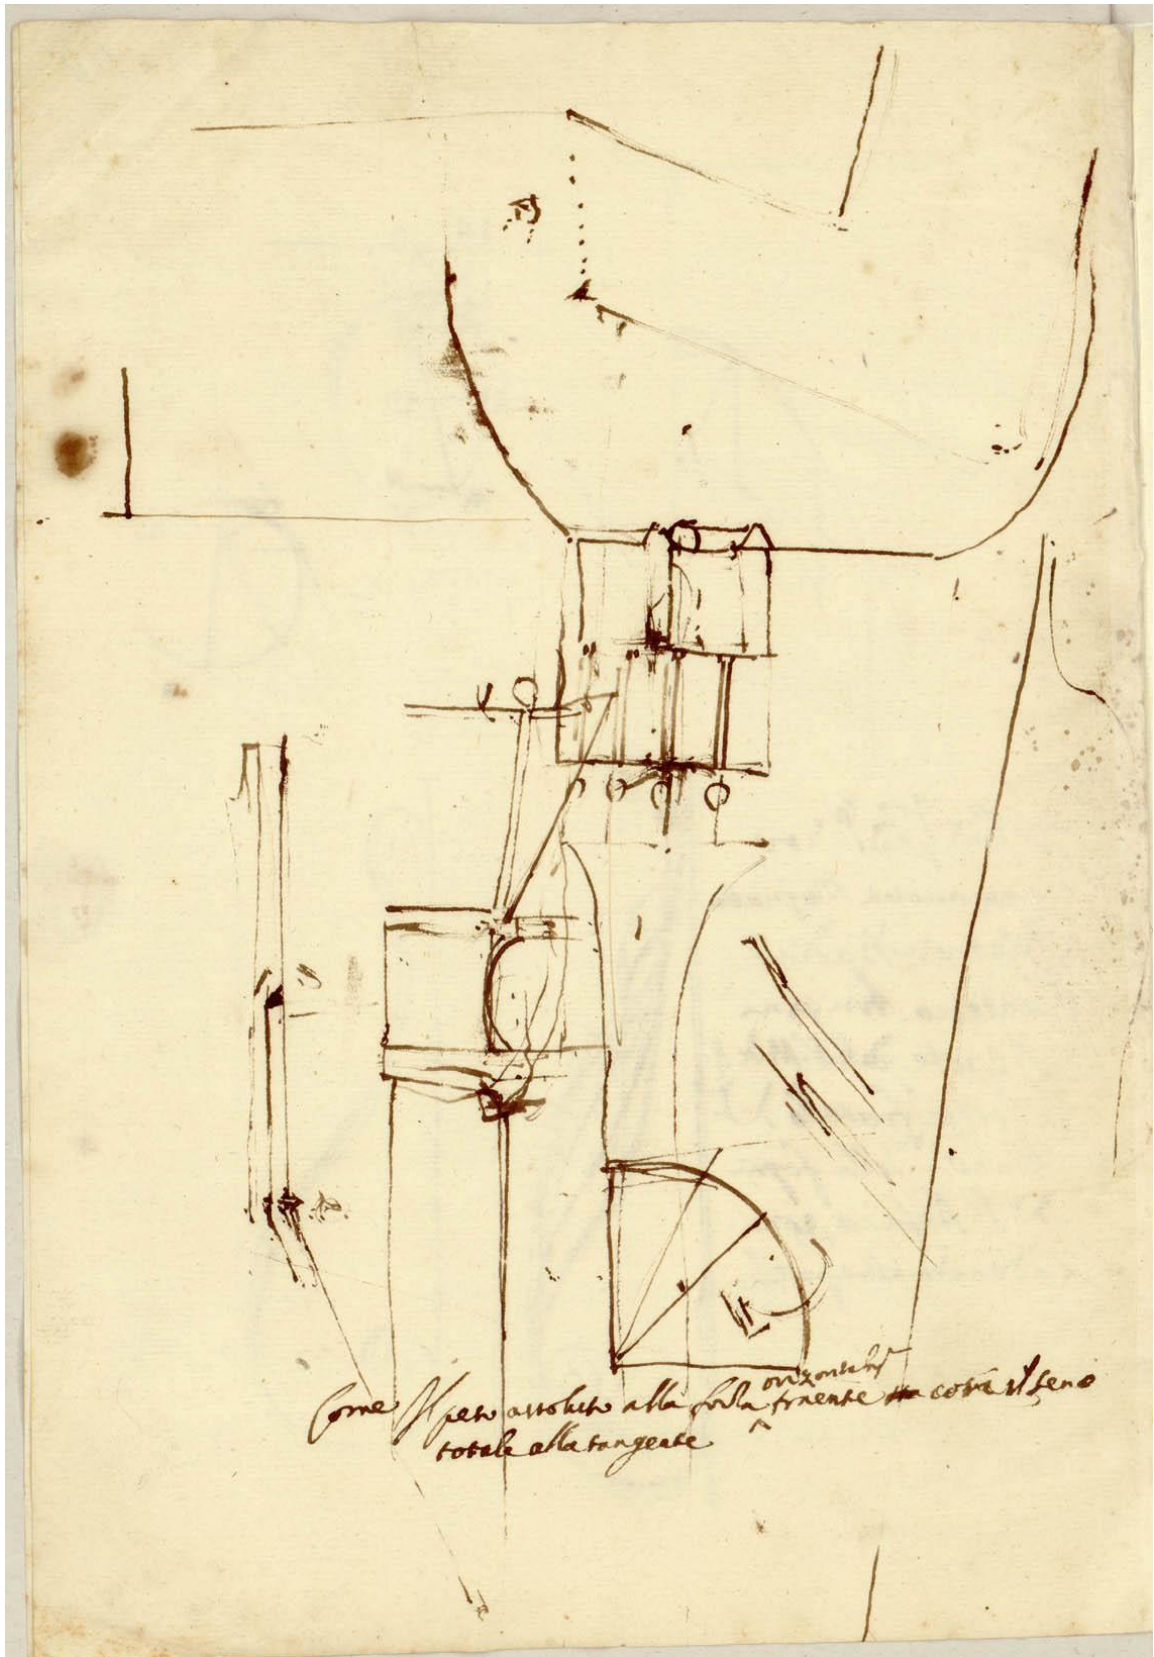 Come Il peso assoluto alla forza traente orizontalm.te così il seno
totale alla tangente